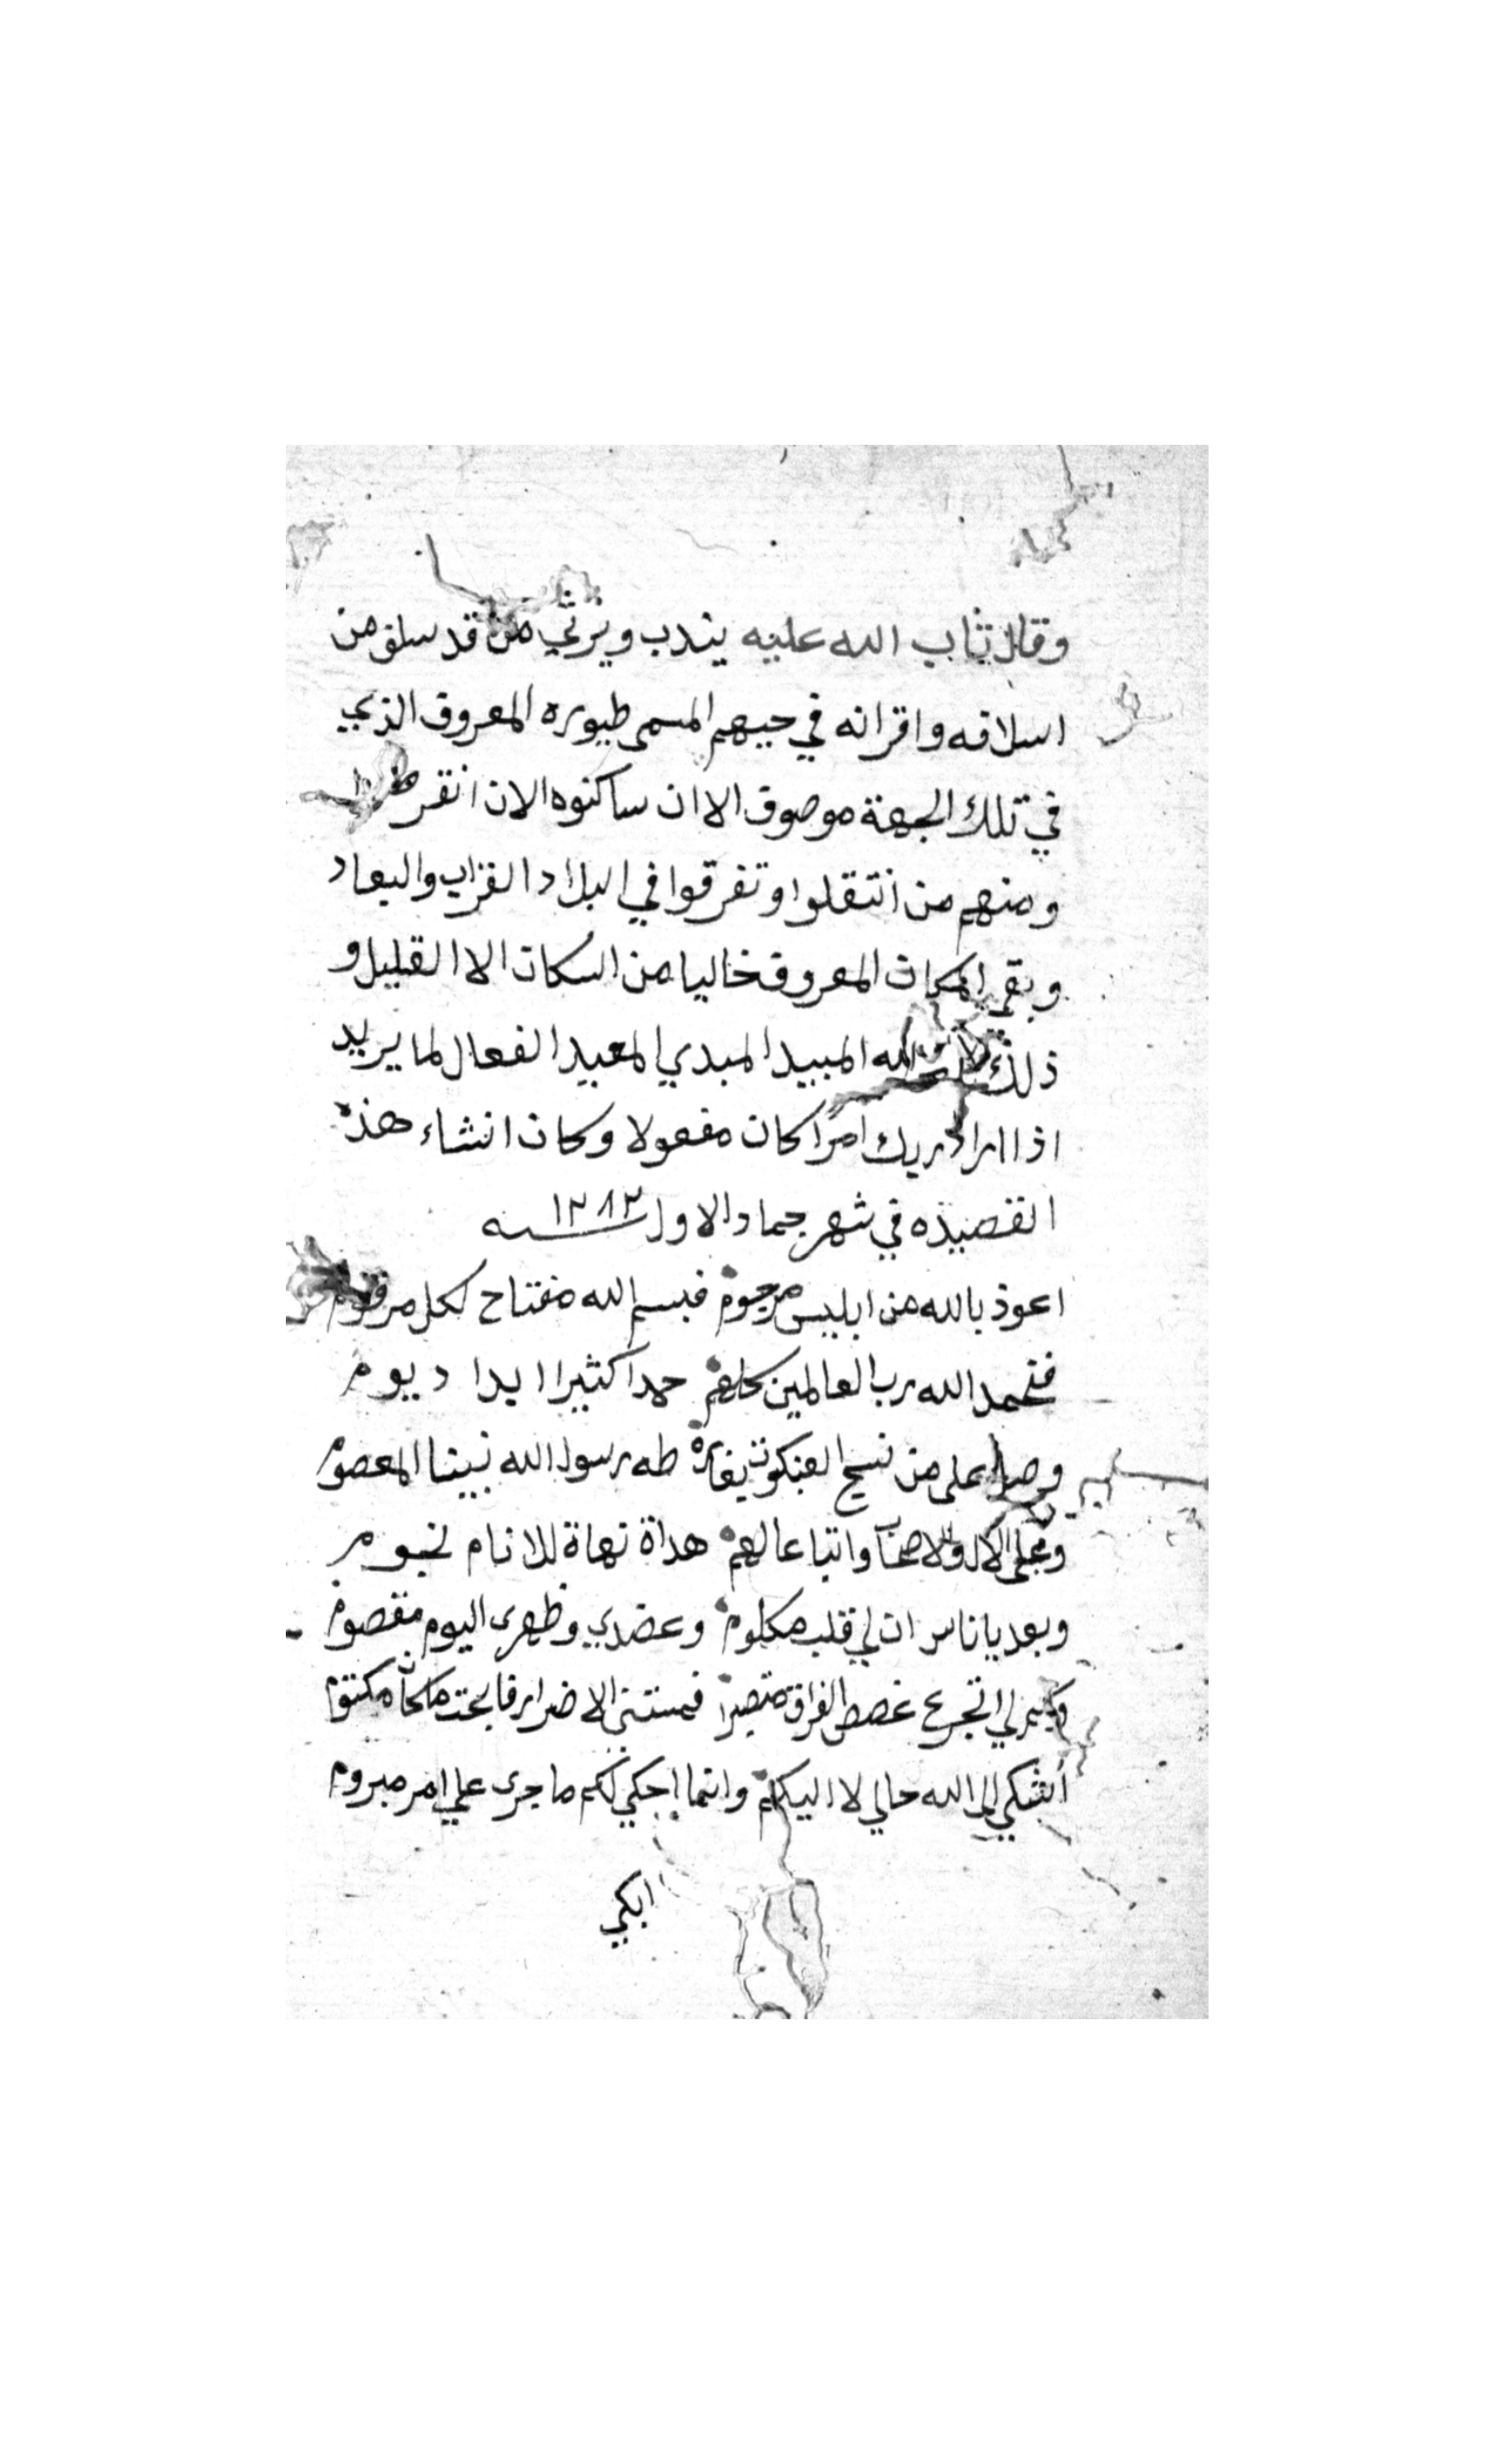 وقال تاب الله عليه يندب ويرثي من قد سلف من
اسلافه واقرانه في حيهم المسمى طيوره المعروف الذي
في تلك الجهة موصوف الا ان ساكنوه الان انقرضوا
ومنهم من انتقلوا وتفرقوا في البلاد القراب والبعاد
وبقي المكان المعروف خاليا من السكان الا القليل و
ذلك الله المبيد المبدي المعيد الفعال لما يريد
اذا اراد ربك امرا كان مفعولا وكان انشاء هذه
القصيده في شهر جماد الاول ١٢٨٣ سنه
اعوذ بالله من ابليس مرجوم فبسم الله مفتاح لكل مرقوم
فنحمد الله رب العالمين كلهم حمدا كثيرا ابدا ديوم
وصلي على من نسج العنكوت بغاره طه رسول الله نبينا المعصوم
وعلى الال والاصحاب واتباعا لهم هداة نهاة للانام نجوم
وبعد يا ناس ان لي قلب مكلوم وعضدي وظهري اليوم مقصوم
لي اتجرع غصص الفراق متصبرا فمستني الاضرار فابحت ما كان مكتوم
أشكي الى الله حالي لا اليكم وانما احكي لكم ما جرى علي امر مبروم
ابكي